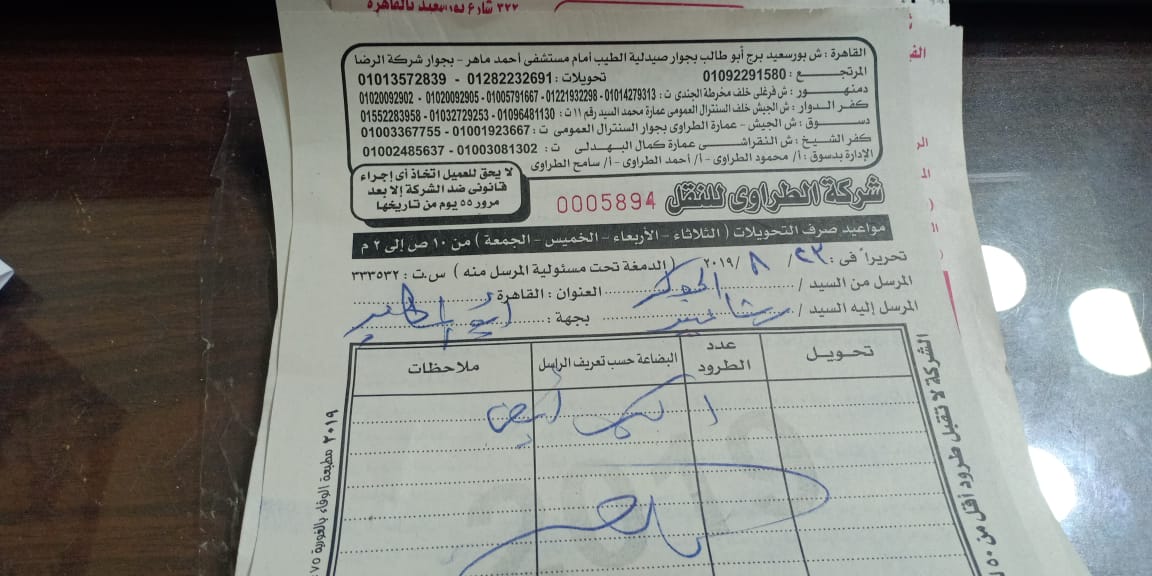 ٣٢٢ شارع بورسعيد بالقاهرة
القاهرة : ش بورسعيد برج أبو طالب بجوار صيدلية الطيب أمام مستشفى أحمد ماهر - بجوار شركة الرضا
المرتجع : 01092291580 تحويلات : 01282232691 - 01013572839
دمنهور : ش فرغلى خلف مخرطة الجندى ت : 01014279313 - 01221932298 - 01005791667 - 01020092905 - 01020092902
كفر الدوار : ش الجيش خلف السنترال العمومى عمارة محمد السيد رقم ١١ ت : 01096481130 - 01032729253 - 01552283958
دسوق : ش الجيش - عمارة الطراوى بجوار السنترال العمومى ت : 01001923667 - 01003367755
كفر الشيخ : ش النقراشى عمارة كمال البهدلى ت : 01003081302 - 01002485637
الإدارة بدسوق : أ/ محمود الطراوى - أ/ أحمد الطراوى - أ/ سامح الطراوى
لا يحق للعميل اتخاذ أى إجراء
قانونى ضد الشركة إلا بعد
مرور ٥٥ يوم من تاريخها
شركة الطراوى للنقل 0005894
مواعيد صرف التحويلات ( الثلاثاء - الأربعاء - الخميس - الجمعة ) من ١٠ ص إلى ٢ م
تحريراً فى : ٢٣ / ٨ / ٢٠١٩ ( الدمغة تحت مسئولية المرسل منه ) س.ت : ٣٣٣٥٣٢
المرسل من السيد / الجوكر العنوان : القاهرة
المرسل إليه السيد / رشا بجهة :
تحويل عدد الطرود البضاعة حسب تعريف الراسل ملاحظات
١
الشركة لا تقبل طرود أقل من ٥٠
٢٠١٩ مطبعة الوفاء بالغورية ٧٥